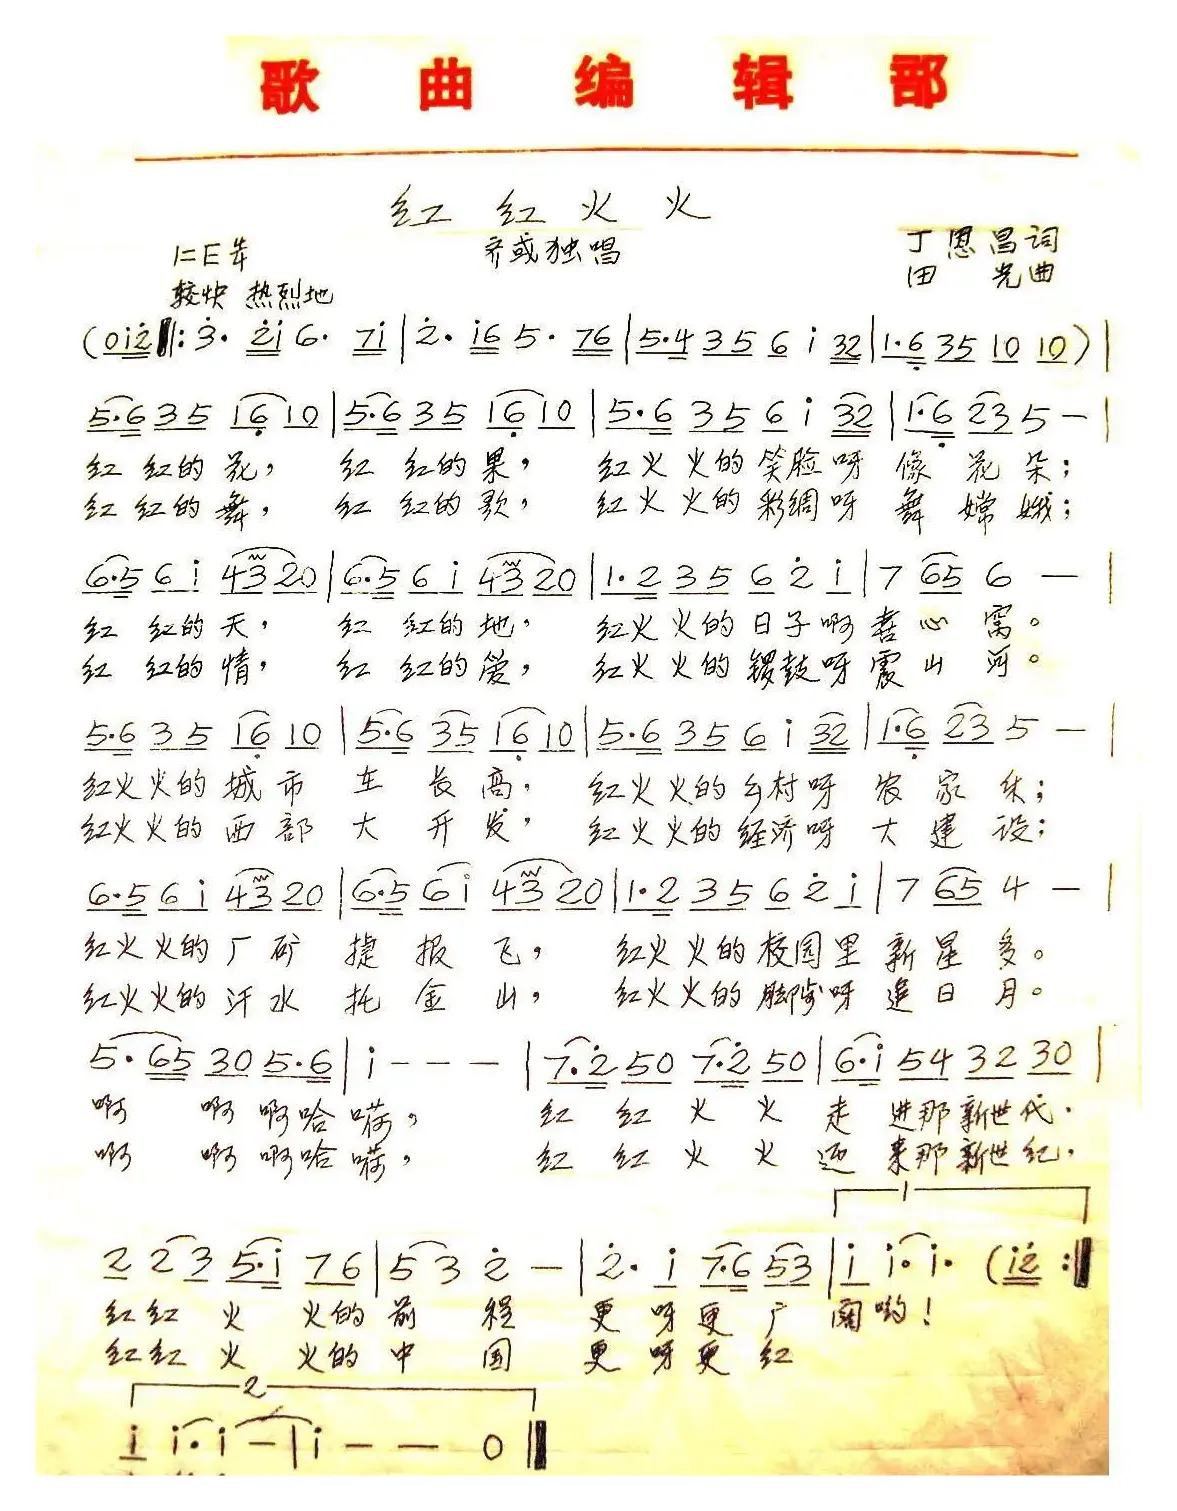 歌曲编辑部
红红火火
齐或独唱
丁恩昌词
1=E 4/4
田光曲
较快 热烈地
(0i2 ‖: 3· 2i 6· 7i | 2· i6 5· 76 | 5·4 35 6 i 32 | 1·6 35 10 10) |
5·6 35 16 10 | 5·6 35 16 10 | 5·6 35 6 i 32 | 1·6 23 5 — |
红 红的花， 红 红的果， 红火火的笑脸呀 像花朵；
红 红的舞， 红 红的歌， 红火火的彩绸呀 舞嫦娥；
6·5 6 i 43 20 | 6·5 6 i 43 20 | 1·2 35 6 2 i | 7 65 6 — |
红 红的天， 红 红的地， 红火火的日子啊 喜心窝。
红 红的情， 红 红的爱， 红火火的锣鼓呀 震山河。
5·6 35 16 10 | 5·6 35 16 10 | 5·6 35 6 i 32 | 1·6 23 5 — |
红火火的城市 车长高， 红火火的乡村呀 农家乐；
红火火的西部 大开发， 红火火的经济呀 大建设；
6·5 6 i 43 20 | 6·5 6 i 43 20 | 1·2 35 6 2 i | 7 65 4 — |
红火火的厂矿 捷报飞， 红火火的校园里 新星多。
红火火的汗水 托金山， 红火火的脚步呀 追日月。
5· 65 30 5·6 | i - - - | 7·2 50 7·2 50 | 6·i 54 32 30 |
啊 啊啊哈嗬， 红 红 火 火 走 进那新世代．
啊 啊啊哈嗬， 红 红 火 火 迎 来那新世纪，
1
2 23 5·i 76 | 5 3 2 — | 2· i 7·6 53 | i i· i· (i2 :‖
红红 火 火的前 程 更 呀更广 阔哟！
红红 火 火的中 国 更 呀更红
2
i i· i — | i — — 0 ‖